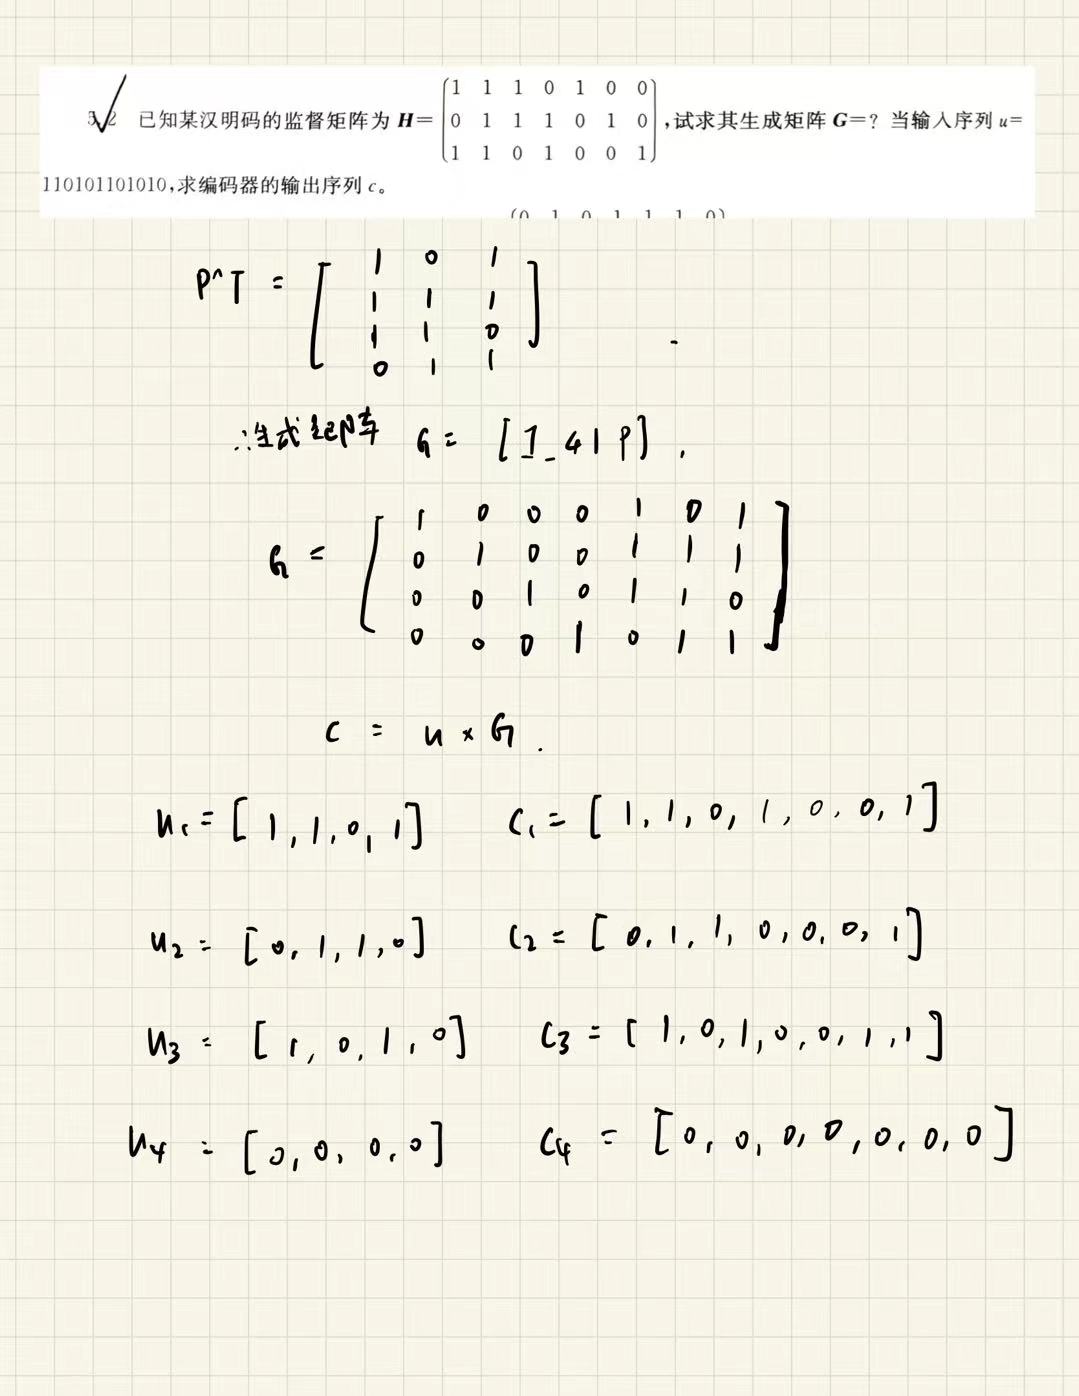 5.2 已知某汉明码的监督矩阵为 H=
1 1 1 0 1 0 0
0 1 1 1 0 1 0
1 1 0 1 0 0 1
,试求其生成矩阵 G=? 当输入序列 u=
110101101010,求编码器的输出序列 c。
(0 1 0 1 1 1 0)
P^T =
1 0 1
1 1 1
1 1 0
0 1 1
∴生式矩阵 G = [I_4|P],
G =
1 0 0 0 1 0 1
0 1 0 0 1 1 1
0 0 1 0 1 1 0
0 0 0 1 0 1 1
C = u × G.
u₁=[1,1,0,1] C₁=[1,1,0,1,0,0,1]
u2=[0,1,1,0] C2=[0,1,1,0,0,0,1]
u3=[1,0,1,0] C3=[1,0,1,0,0,1,1]
u4=[0,0,0,0] C4=[0,0,0,0,0,0,0]